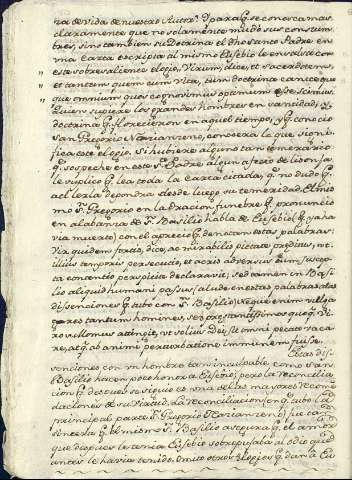 ria de vida de nuestro Autor. Y para q. se conozca mas
claramente que no solamente mudó sus costum
bres, sino tambien su Doctrina el dho Santo Padre en
una Carta escripta al mismo Eusebio le ensalza con
este sobresaliente elogio, Virum, dice, et sacerdotem,
et tantum quem cum vita, tum doctrina canitie que
que omnium, quos cognovimus optimum esse scimus.
Quien supiere los grandes hombres en santidad, y
doctrina q. florecieron en aquel tiempo, y q. conocio
San Gregorio Nazianzeno, conocerá lo que signi
fica este elogio. Si hubiere alguno tan temerario
q. sospeche en este S.to Padre algun afecto de lisonja
le suplico q. lea toda la Carta citada, q. no dudo q.
al leerla depondrá desde luego su temeridad. El mis
mo S. Gregorio en la oracion funebre q. pronunció
en alabanza de S. Basilio habla de Eusebio (q. ya ha
via muerto) con el aprecio q. denotan estas palabras:
Vir quidem fortis, dice, ac mirabilis pietate præditus, ut
illius temporis persecutio, et acris adversus eum suscep
ta contentio perspicue declaravit; sed tamen in Basi
lio aliquid humani passus (alude en estas palabras á las
dissenciones q. tubo con S. Basilio) neque enim vulga
res tantum homines, sed præstantissimos quoq.
ro vel momus attingit, ut solius Dei sit omni peccato vaca
re, atq. ab animi perturbatione immunem fuisse.
Estas dis
senciones con un hombre tan inculpable como S.n
Basilio hacen poco honor a Eusebio; pero la reconcilia
cion q. despues se siguió es una de las mayores recomen
daciones de su virtud. La reconciliacion q. tubo
principal parte S. Gregorio Nazianzeno) fue tan
sincera q. el mismo S. Basilio asegura q. el amor
que despues le tenia Eusebio sobrepujaba al odio que
antes le havia tenido. Omito otros elogios q. dan a Eu